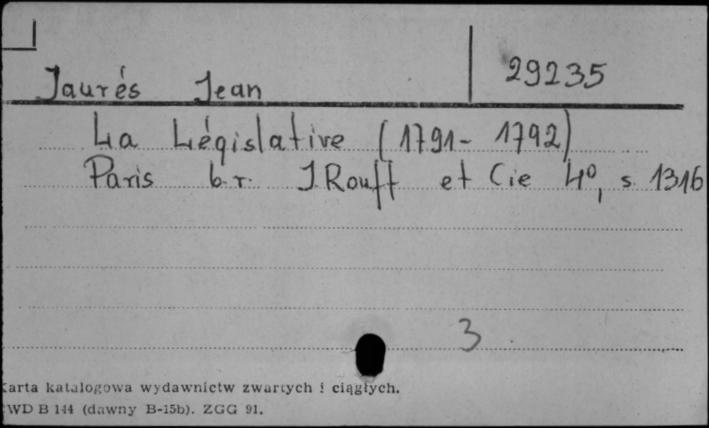 29235
Jaurés Jean
La Législative (1791-1792)
Paris b.r. J.Rouff et Cie 4⁰, s. 1316
3
Karta katalogowa wydawnictw zwartych i ciągłych.
WD B 144 (dawny B-15b). ZGG 91.